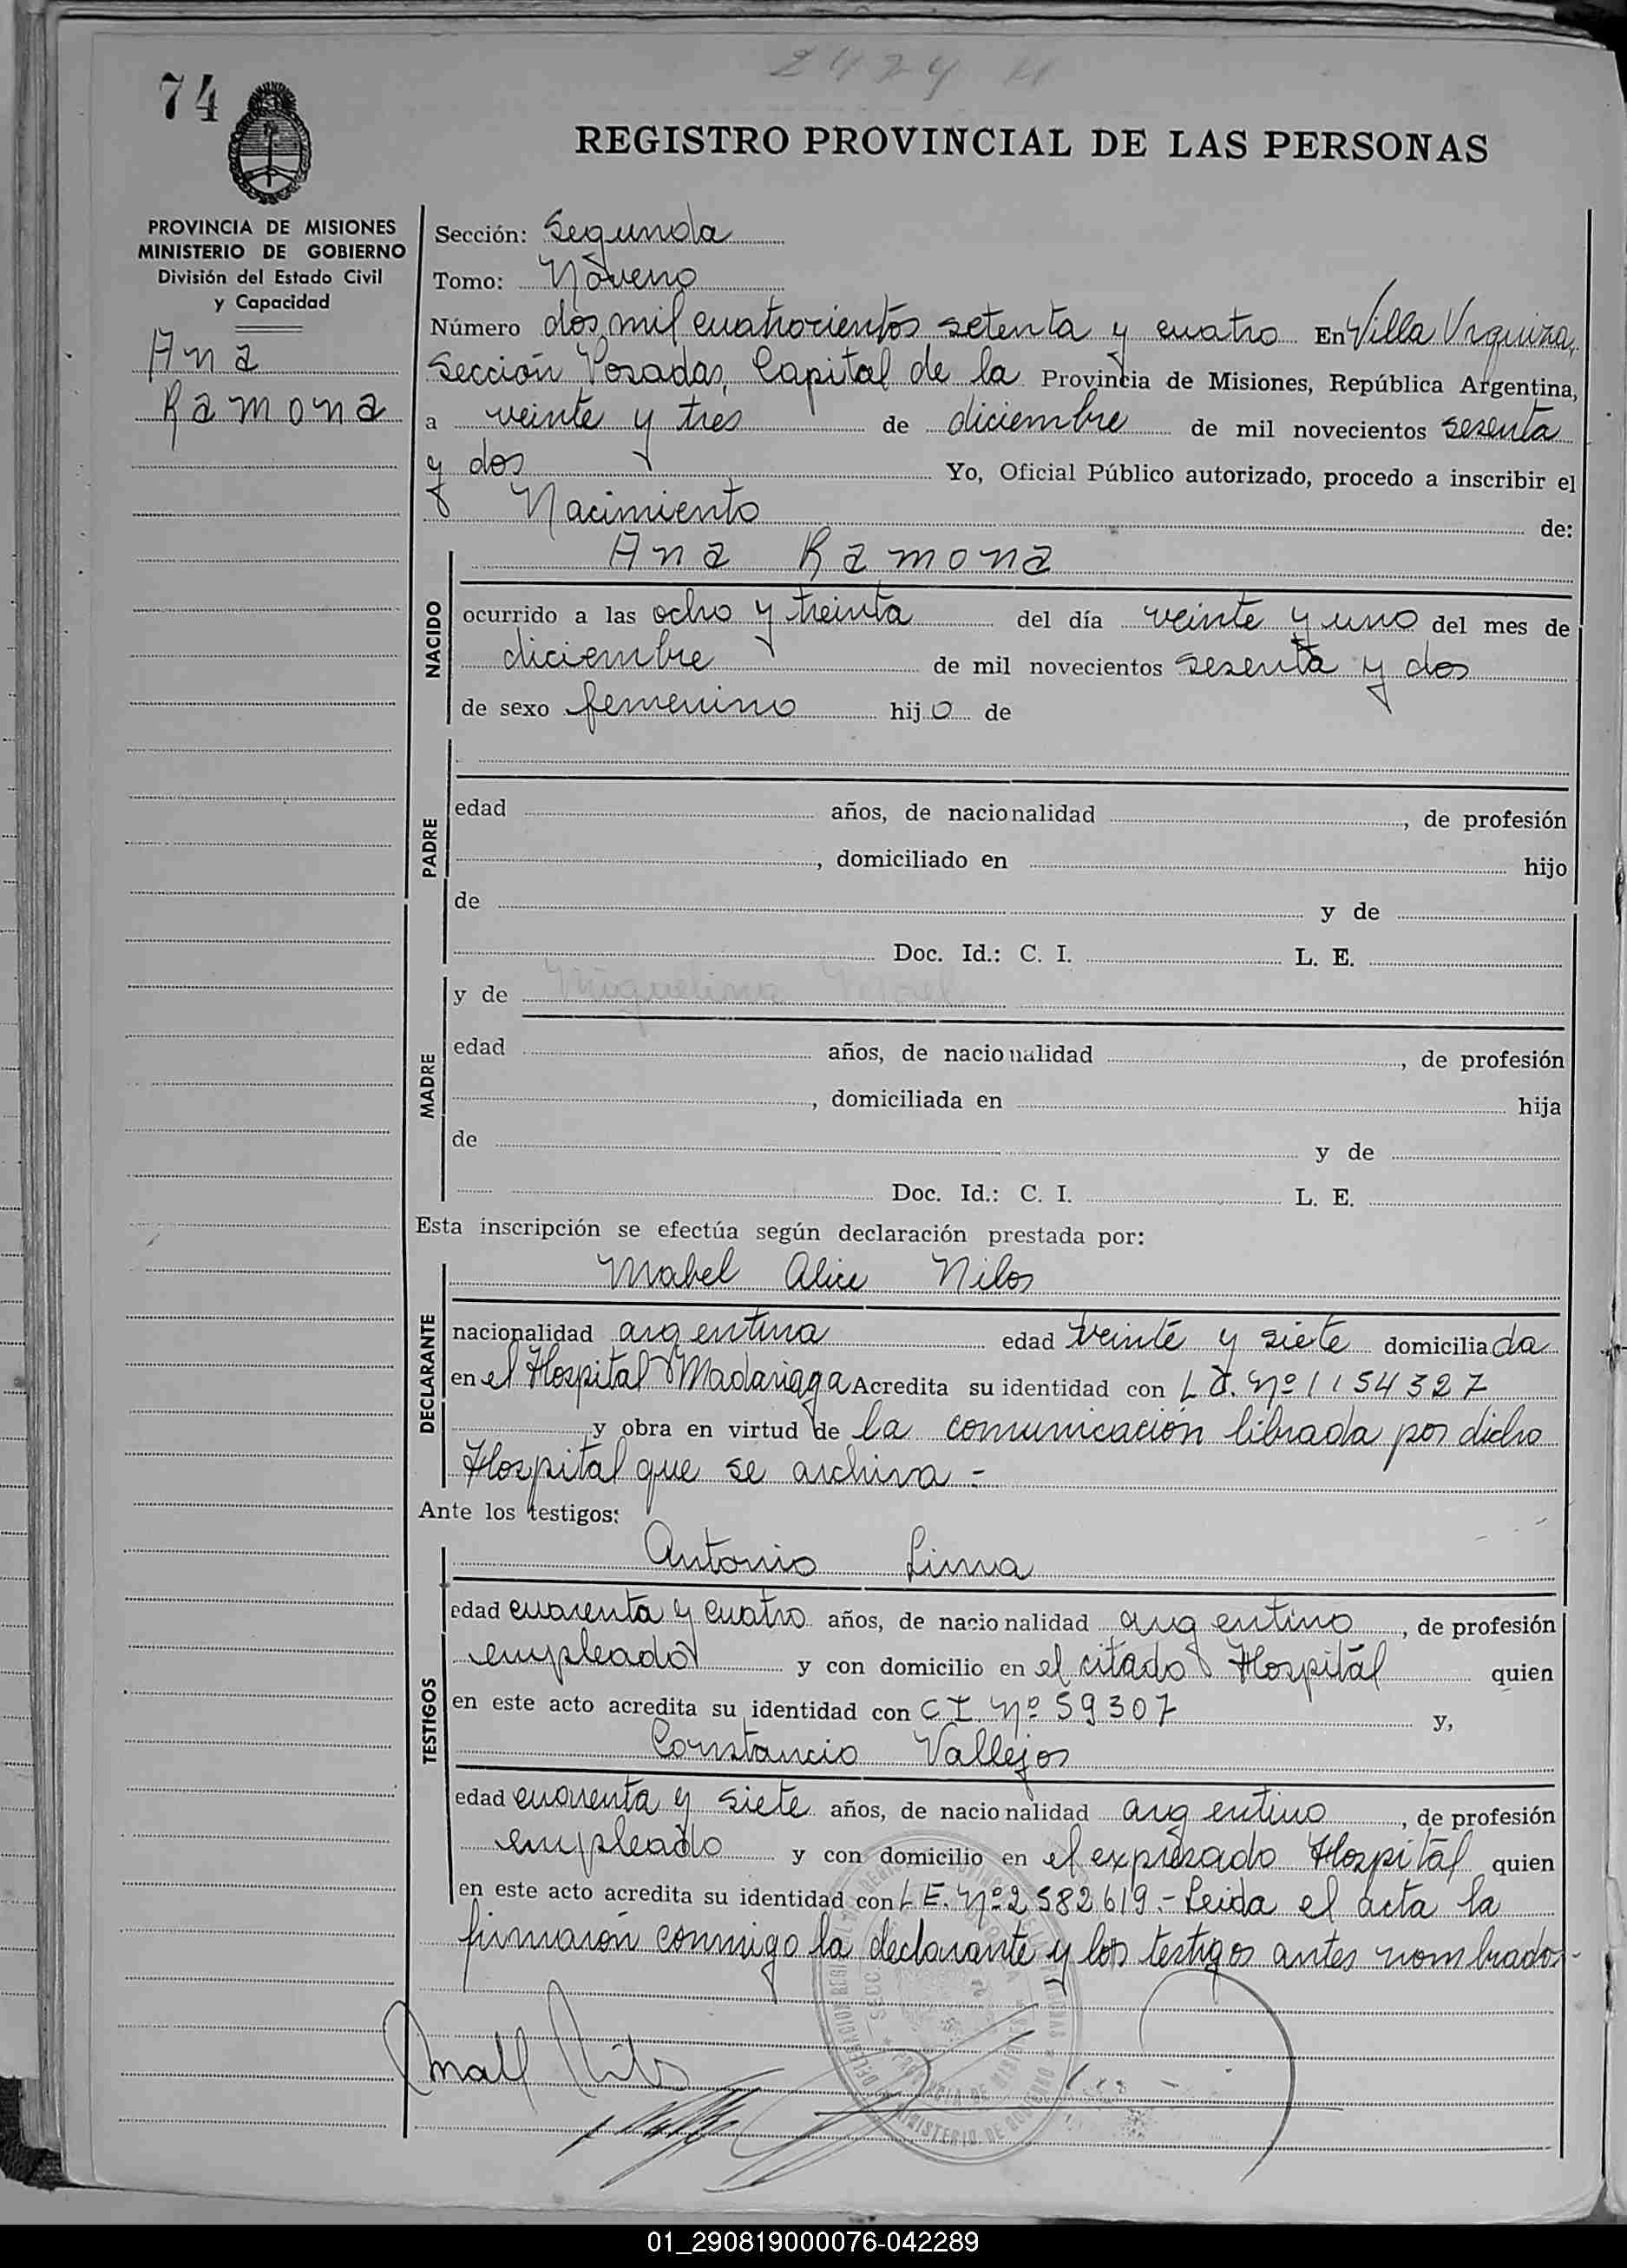 2474
74
REGISTRO PROVINCIAL DE LAS PERSONAS
PROVINCIA DE MISIONES
MINISTERIO DE GOBIERNO
División del Estado Civil
y Capacidad
Ana
Ramona
Sección: Segunda
Tomo: Noveno
Número dos mil cuatrocientos setenta y cuatro En Villa Urquiza,
Sección Posadas, Capital de la Provincia de Misiones, República Argentina,
a veinte y tres de diciembre de mil novecientos sesenta
y dos Yo, Oficial Público autorizado, procedo a inscribir el
Nacimiento de:
Ana Ramona
NACIDO
ocurrido a las ocho y treinta del día veinte y uno del mes de
diciembre de mil novecientos sesenta y dos
de sexo femenino hijo de
PADRE
edad años, de nacionalidad , de profesión
, domiciliado en hijo
de y de
Doc. Id.: C. I. L. E.
MADRE
y de Miguelina
edad años, de nacionalidad , de profesión
, domiciliada en hija
de y de
Doc. Id.: C. I. L. E.
Esta inscripción se efectúa según declaración prestada por:
Mabel Alice Nilos
DECLARANTE
nacionalidad argentina edad veinte y siete domiciliada
en el Hospital Madariaga Acredita su identidad con L.C. Nº 1154327
y obra en virtud de la comunicación librada por dicho
Hospital que se archiva -
Ante los testigos:
Antonio Lima
TESTIGOS
edad cuarenta y cuatro años, de nacionalidad argentino , de profesión
empleado y con domicilio en el citado Hospital quien
en este acto acredita su identidad con C I Nº 59307 y,
Constancio Vallejos
edad cuarenta y siete años, de nacionalidad argentino , de profesión
empleado y con domicilio en el expresado Hospital quien
en este acto acredita su identidad con L E. Nº 2582619.- Leida el acta la
firmaron conmigo la declarante y los testigos antes nombrados-
PROVINCIA DE MISIONES
MINISTERIO DE GOBIERNO
01_290819000076-042289